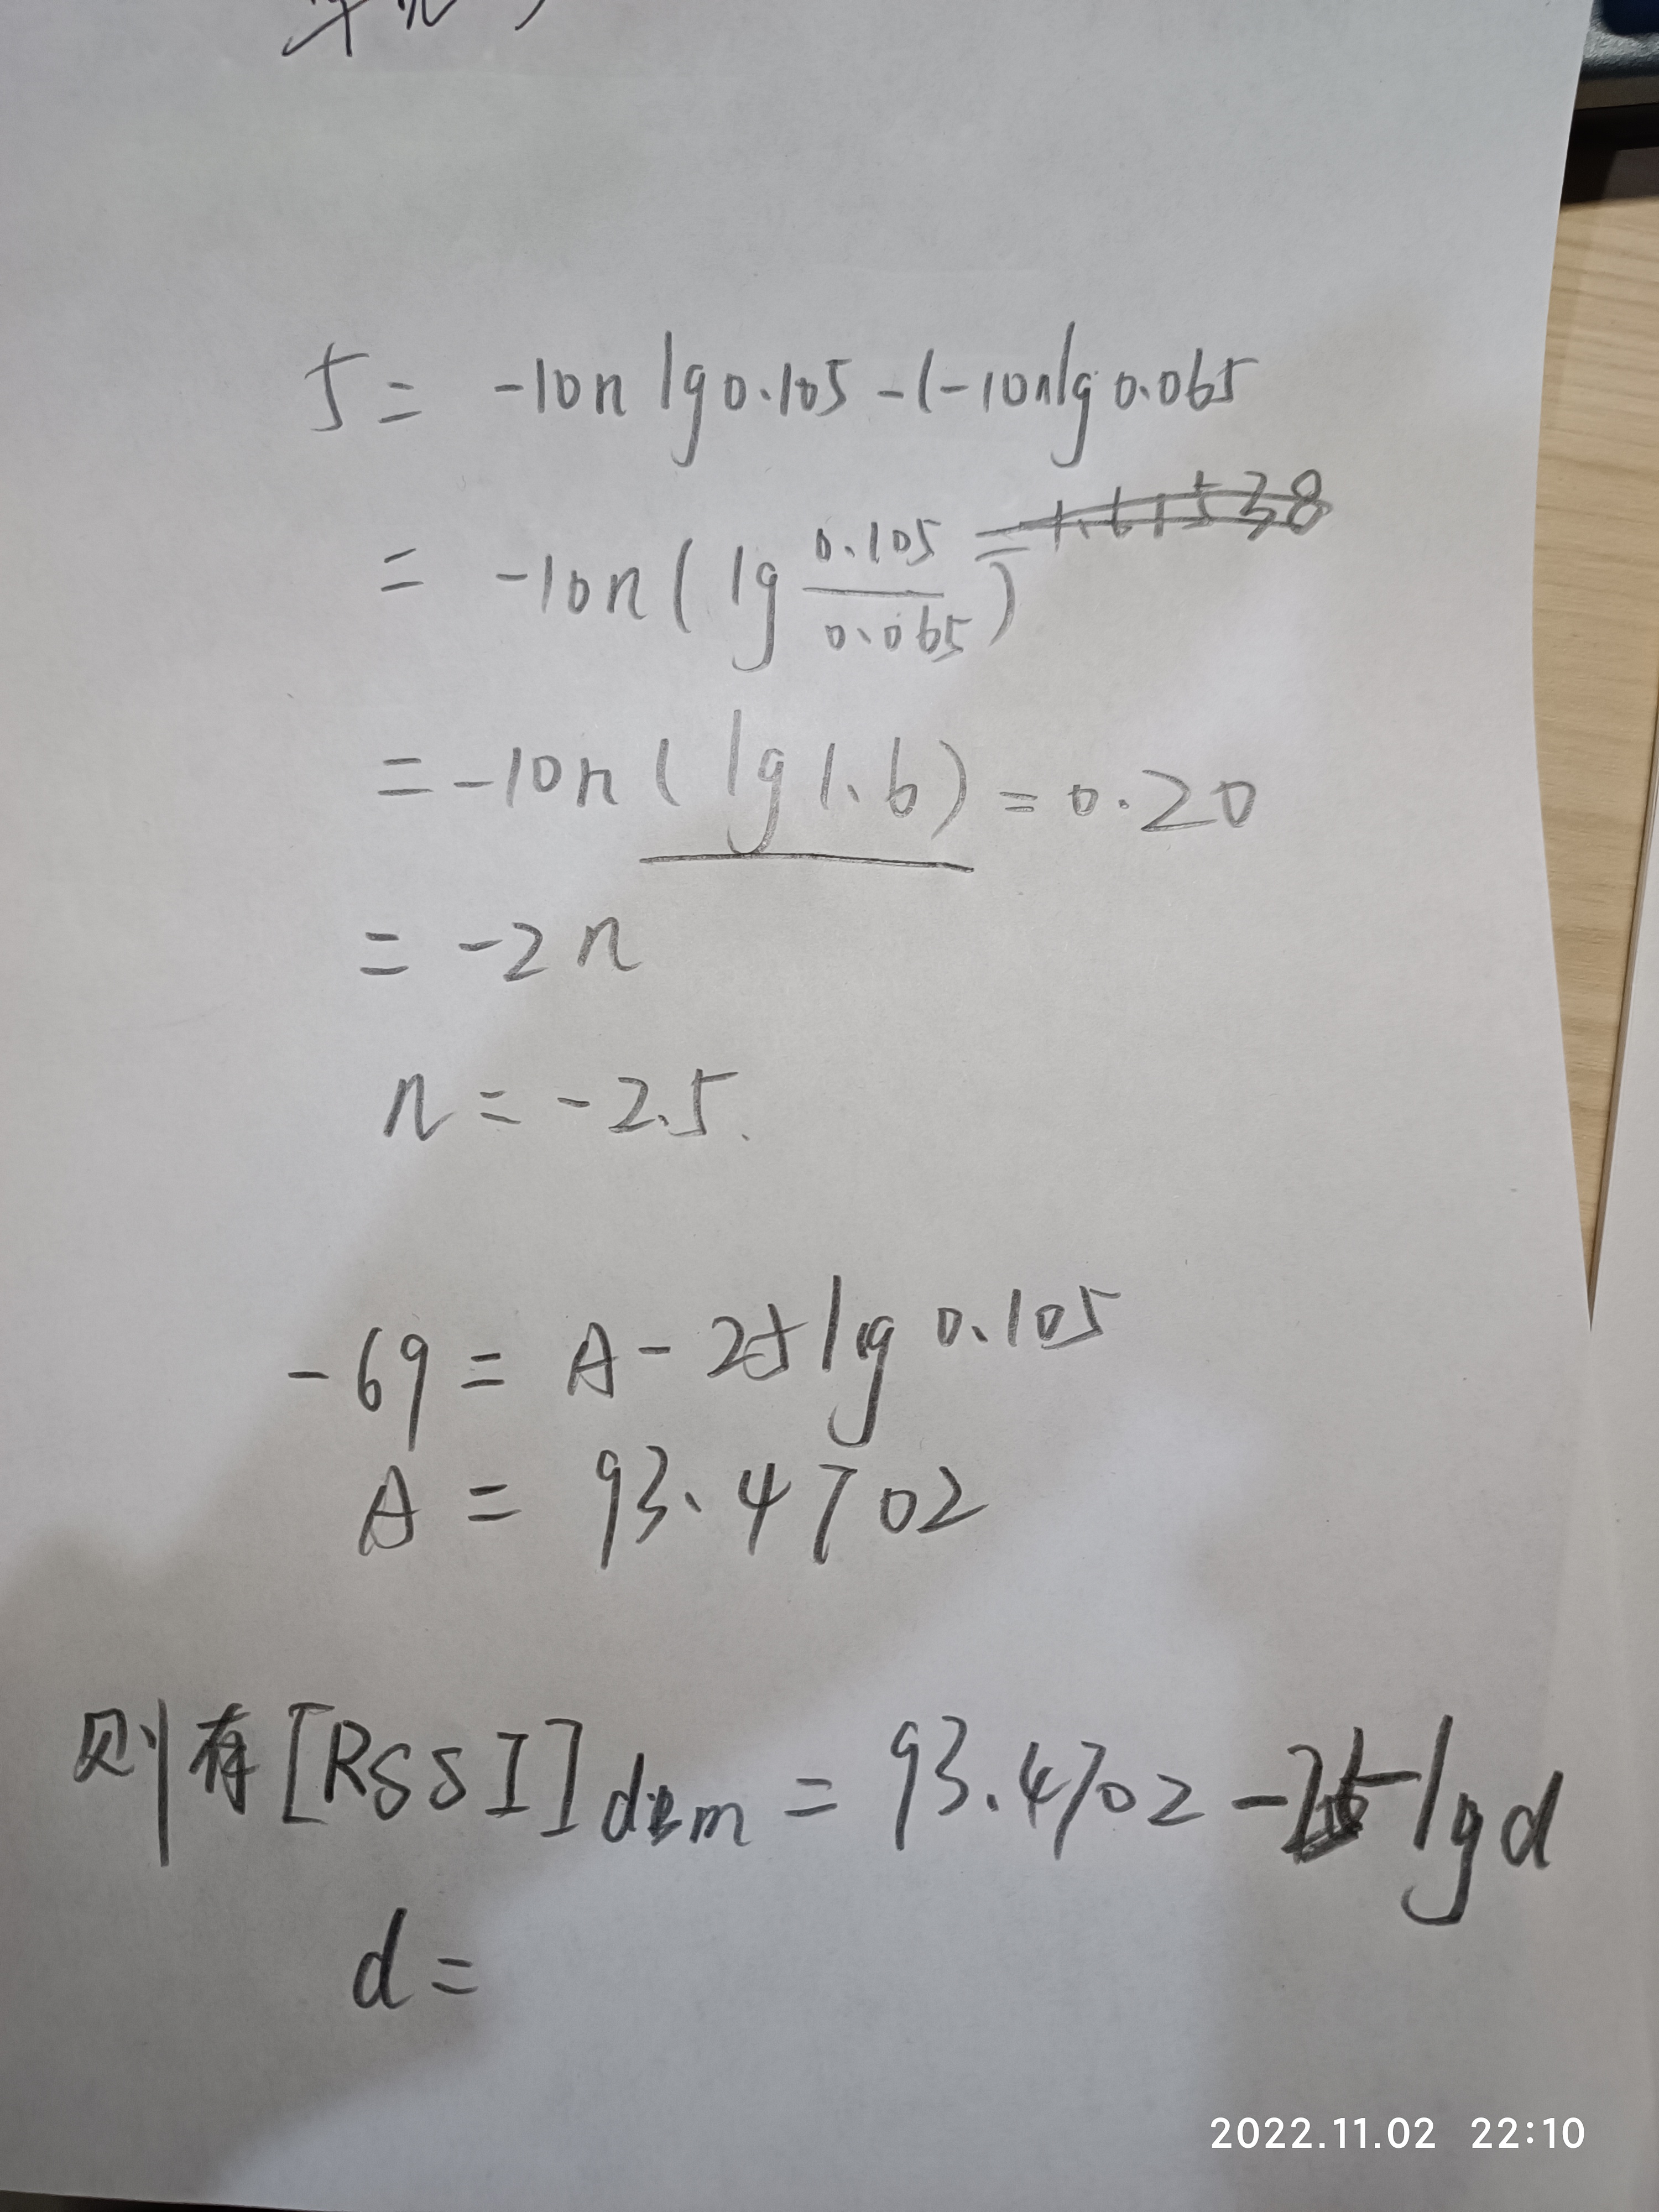 5 = -10n lg0.105 -(-10nlg0.065
= -10n(lg 0.105/0.065) = 1.61538
= -10n(lg1.6) = 0.20
= -2n
n = -2.5.
-69 = A - 25lg0.105
A = 93.4702
则有[RSSI]dBm = 93.4702 - 25lgd
d =
2022.11.02 22:10